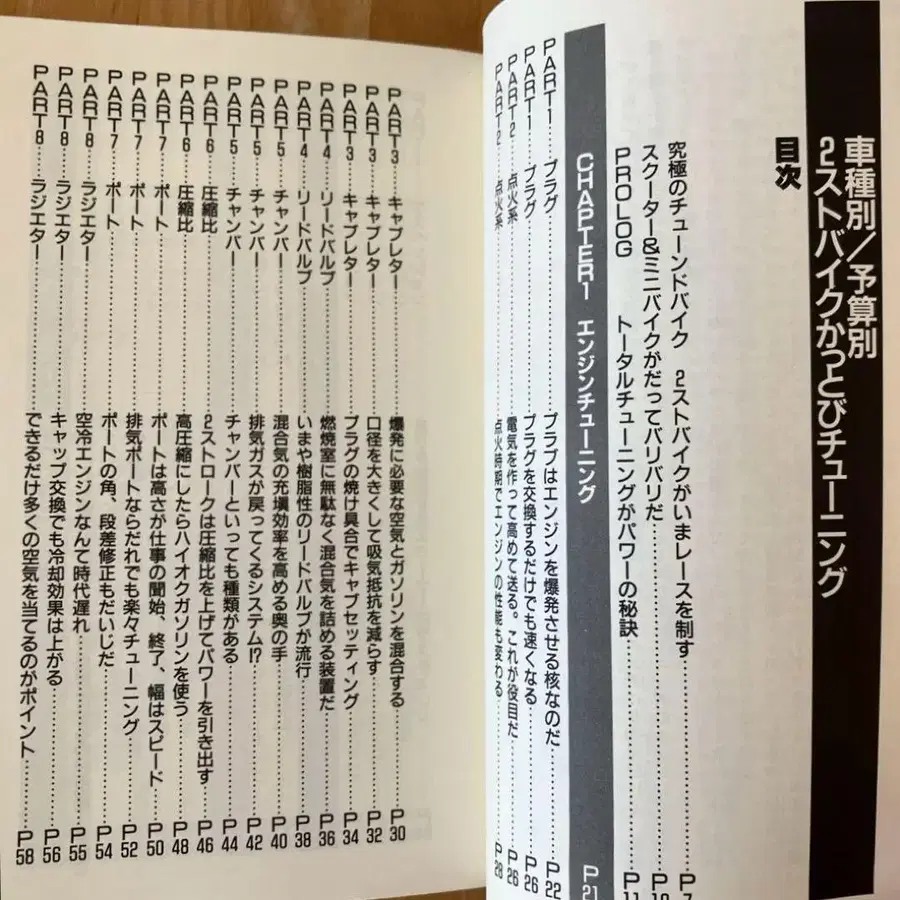 車種別／予算別
2ストバイクかっとびチューニング
目次
究極のチューンドバイク 2ストバイクがいまレースを制す……P7
スクーター&ミニバイクがだってバリバリだ……
PROLOG トータルチューニングがパワーの秘訣……P11
CHAPTER1 エンジンチューニング P21
PART1……プラグ……プラブはエンジンを爆発させる核なのだ……P22
PART1……プラグ……プラグを交換するだけでも速くなる……P26
PART2……点火系……電気を作って高めて送る。これが役目だ……P26
PART2……点火系……点火時期でエンジンの性能も変わる……P28
PART3……キャブレター……爆発に必要な空気とガソリンを混合する……P30
PART3……キャブレター……口径を大きくして吸気抵抗を減らす……P32
PART3……キャブレター……プラグの焼け具合でキャブセッティング……P34
PART4……リードバルブ……燃焼室に無駄なく混合気を詰める装置だ……P36
PART4……リードバルブ……いまや樹脂性のリードバルブが流行……P38
PART5……チャンバー……混合気の充塡効率を高める奥の手……P40
PART5……チャンバー……排気ガスが戻ってくるシステム!?……P42
PART5……チャンバー……チャンバーといっても種類がある……P44
PART6……圧縮比……2ストロークは圧縮比を上げてパワーを引き出す……P46
PART6……圧縮比……高圧縮にしたらハイオクガソリンを使う……P48
PART7……ポート……ポートは高さが仕事の開始、終了、幅はスピード……P50
PART7……ポート……排気ポートならだれでも楽々チューニング……P52
PART7……ポート……ポートの角、段差修正もだいじだ……P54
PART8……ラジエター……空冷エンジンなんて時代遅れ……P55
PART8……ラジエター……キャップ交換でも冷却効果は上がる……P56
PART8……ラジエター……できるだけ多くの空気を当てるのがポイント……P58